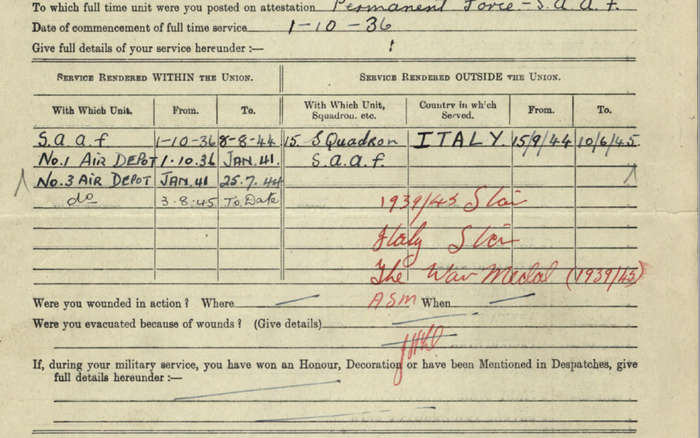 To which full time unit were you posted on attestation Permanent Force - S.a.a.f.
Date of commencement of full time service 1-10-36
Give full details of your service hereunder :—
SERVICE RENDERED WITHIN THE UNION. SERVICE RENDERED OUTSIDE THE UNION.
With Which Unit. From. To. With Which Unit, Squadron. etc. Country in which Served. From. To.
S.a.a.f 1-10-36 8-8-44 15 SQuadron ITALY 15/9/44 10/6/45
No.1 AIR DEPOT 1.10.36 JAN.41. S.a.a.f.
No.3 AIR DEPOT JAN.41 25.7.44
do 3.8.45 To Date 1939/45 Star
Italy Star
The War Medal (1939/45)
Were you wounded in action ? Where ASM When
Were you evacuated because of wounds ? (Give details)
If, during your military service, you have won an Honour, Decoration or have been Mentioned in Despatches, give
full details hereunder :—